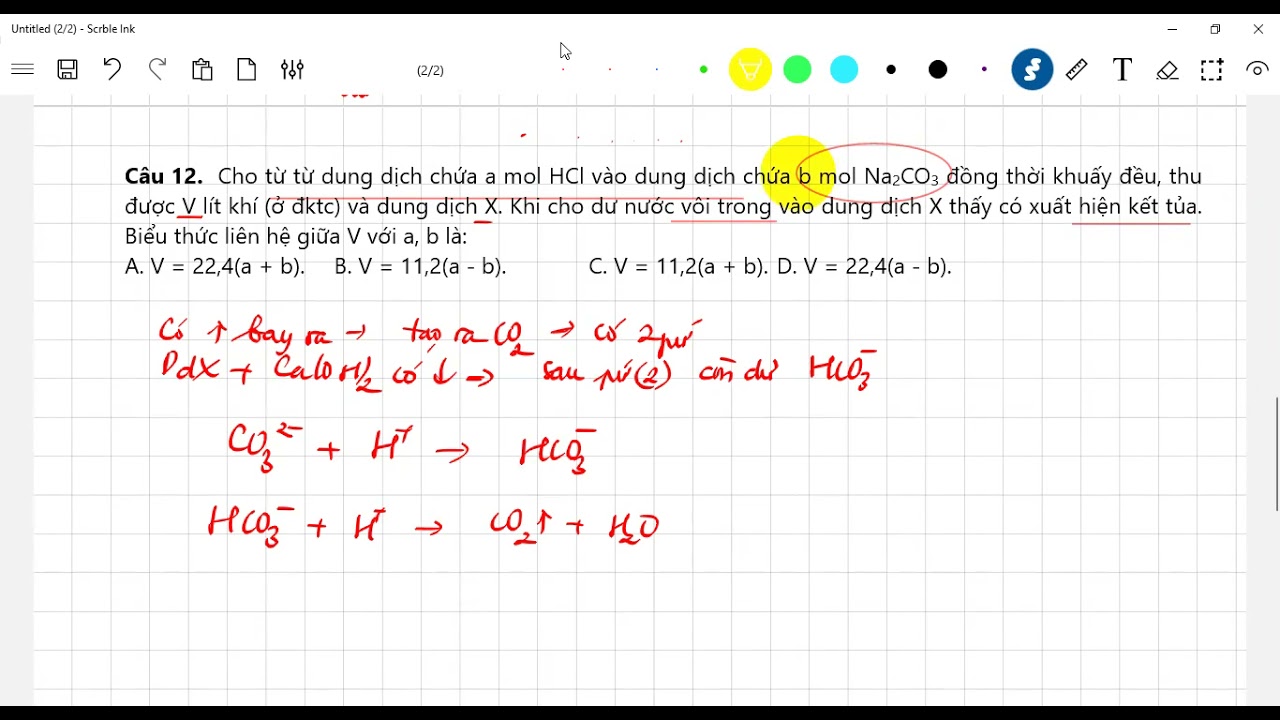 Untitled (2/2) - Scrble Ink
(2/2)
T
Câu 12. Cho từ từ dung dịch chứa a mol HCl vào dung dịch chứa b mol Na₂CO₃ đồng thời khuấy đều, thu
được V lít khí (ở đktc) và dung dịch X. Khi cho dư nước vôi trong vào dung dịch X thấy có xuất hiện kết tủa.
Biểu thức liên hệ giữa V với a, b là:
A. V = 22,4(a + b). B. V = 11,2(a - b). C. V = 11,2(a + b). D. V = 22,4(a - b).
Có ↑ bay ra → tạo ra CO₂ → có 2 pứ
DdX + Ca(OH)₂ có ↓ → sau pứ (2) còn dư HCO₃⁻
CO₃²⁻ + H⁺ → HCO₃⁻
HCO₃⁻ + H⁺ → CO₂↑ + H₂O